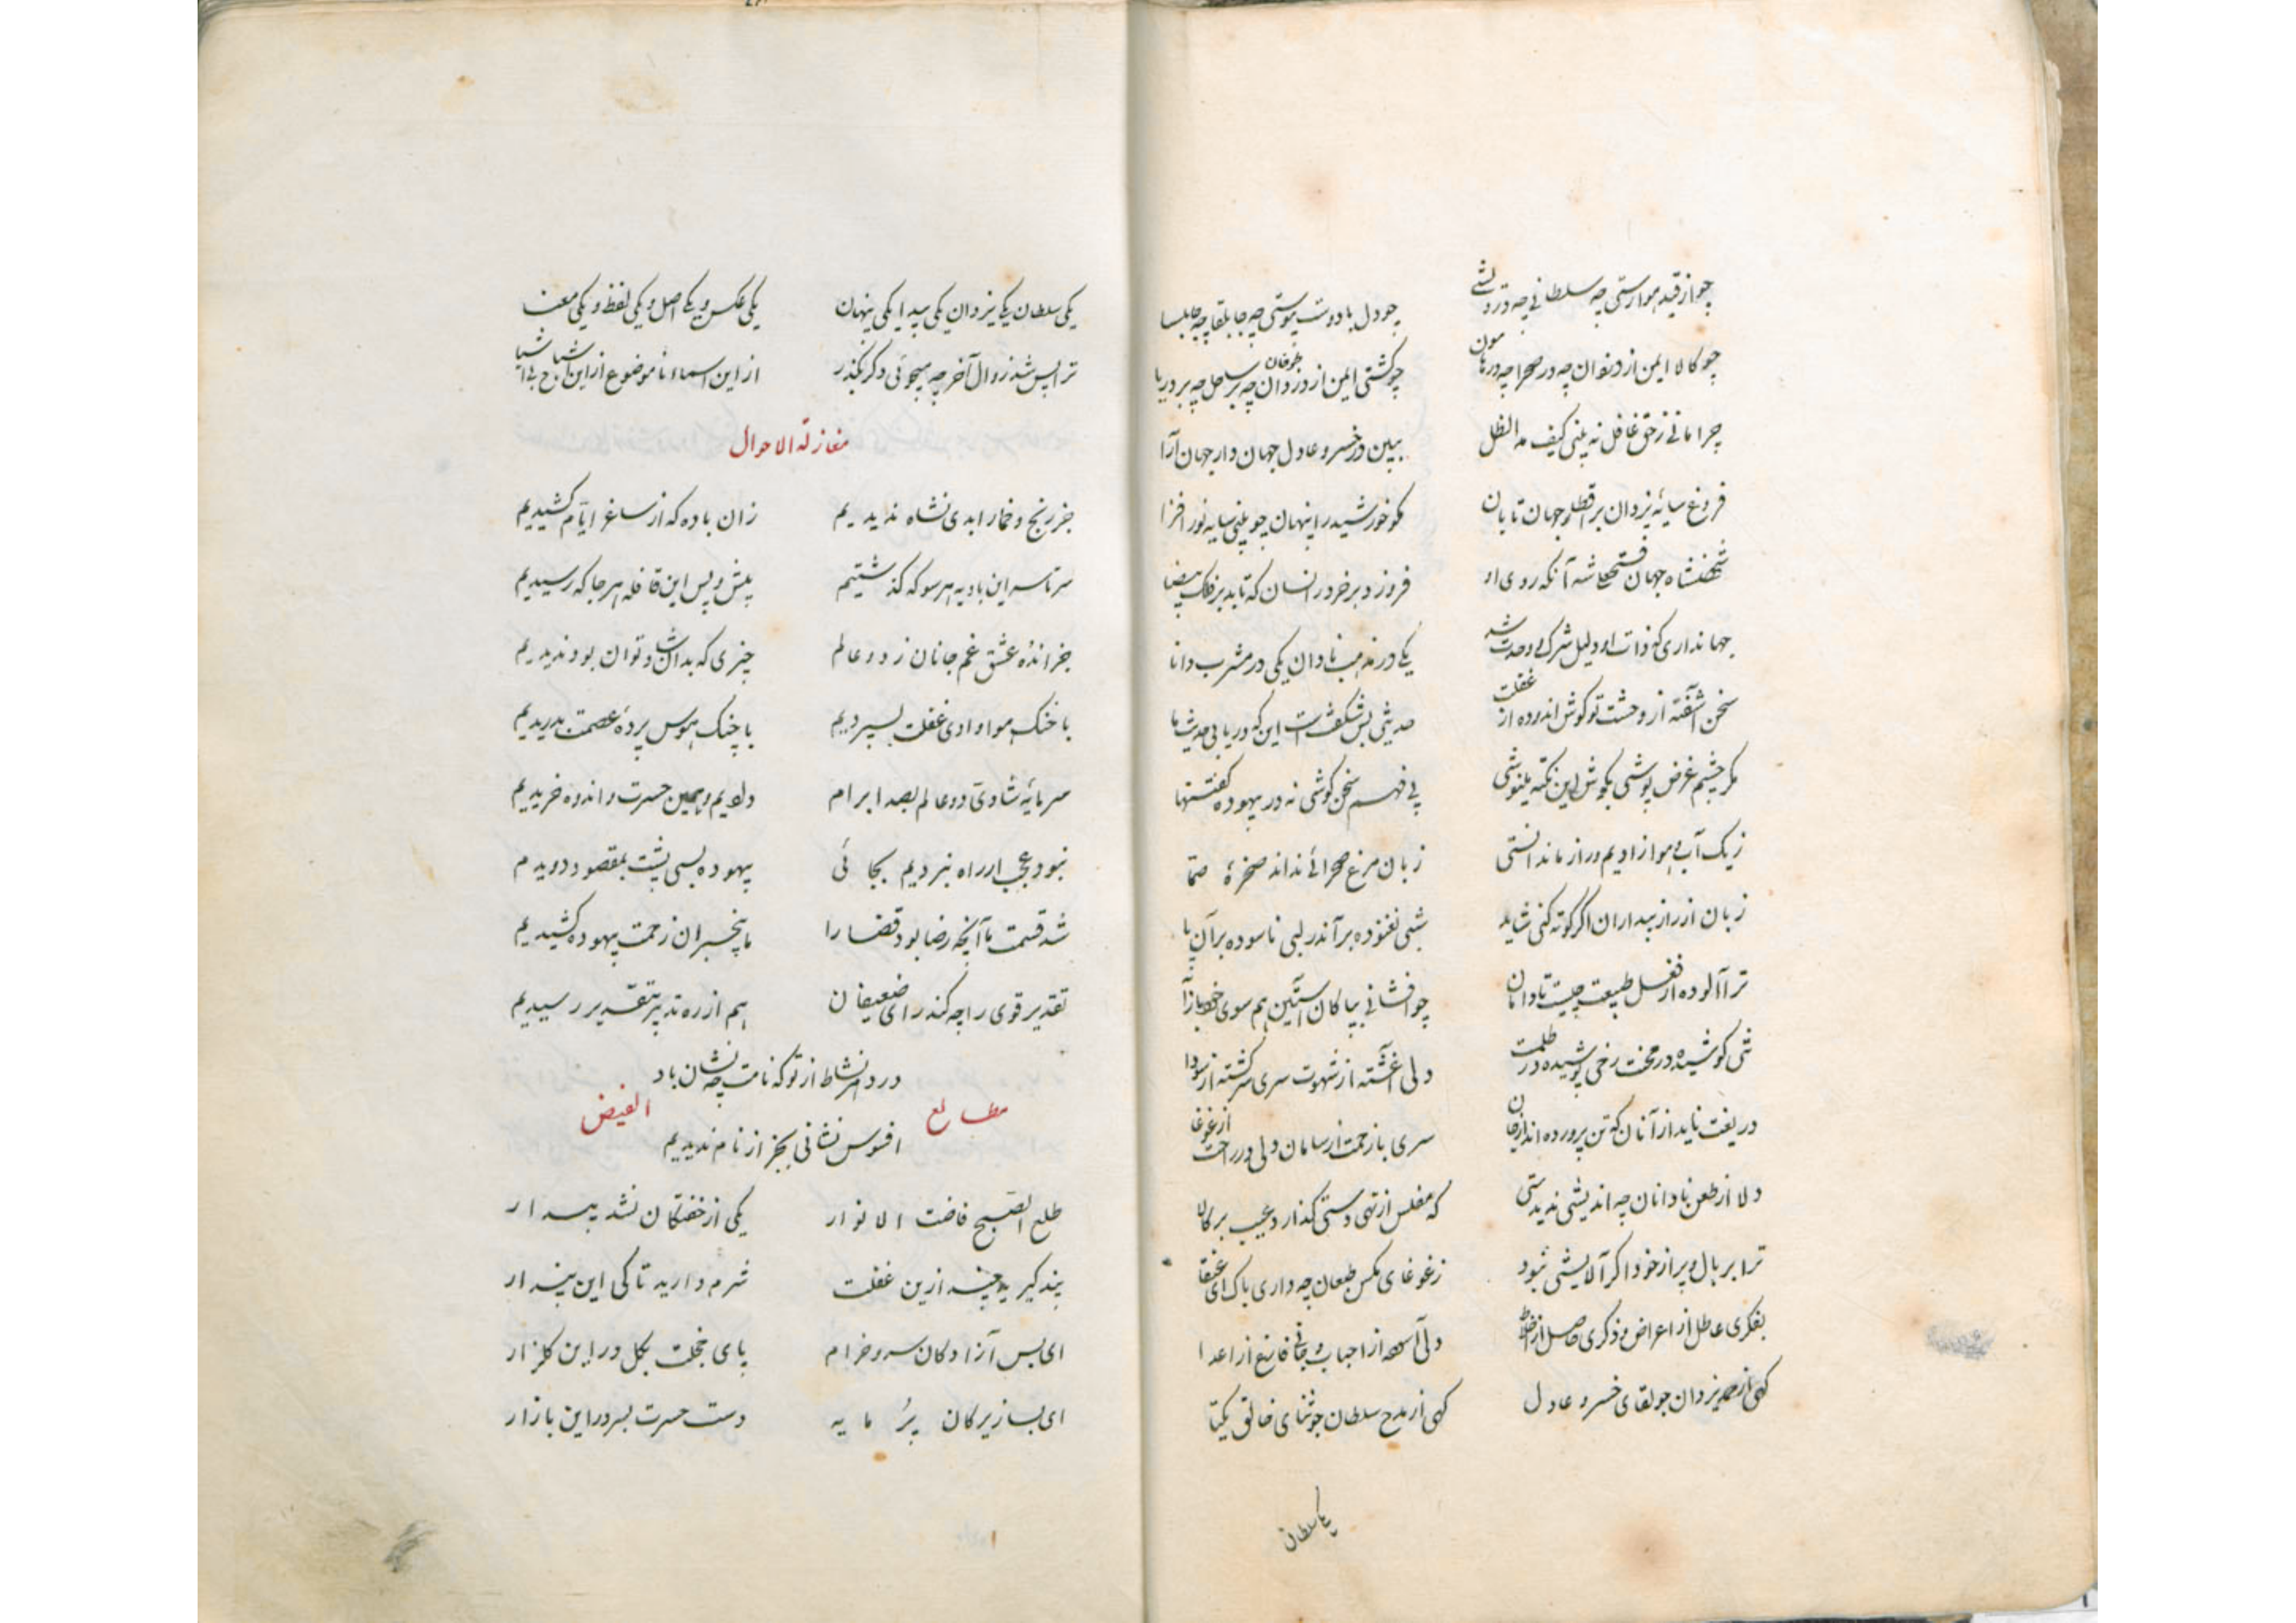 چو از قید هوا رستی چه سلطانی چه درویشی چو دل با دوست پیوستی چه جابلقا چه جابلسا
چو کالا ایمن از دزدان چه در صحرا چه در هامون چو کشتی ایمن از طوفان چه بر ساحل چه بر دریا
چرا مانی ز حق غافل نه بینی کیف مد الظل ببین در خسرو عادل جهان دار جهان آرا
فروغ سایهٔ یزدان بر اقطار جهان تابان مگو خورشید را پنهان چو بینی سایه نور افزا
شهنشاه جهان فتحعلی شه آنکه روی او فروزد بر خرد زانسان که تابد بر فلک بیضا
جهانداری که ذات او دلیل شرک و وحدت شد یکی در مذهب نادان یکی در مشرب دانا
سخن آشفته از وحشت تو گوش اندوده از غفلت حدیثی بس شگفتست این که دریابی حدیث ما
مگر چشم غرض پوشی بگوش این نکته بنیوشی پی فهم سخن کوشی نه در بیهوده گفتنها
ز یک آب و هوا زادیم و راز ما ندانستی زبان مرغ صحرائی نداند صخرهٔ صما
زبان از راز بیداران اگر کوته کنی شاید شبی نغنوده بر آن در لبی ناسوده بر آن پا
ترا آلوده از فضل طبیعت چیست تا دامان چو افشانی بپاکان آستین هم سوی خود باز آ
تنی کوشیده در محنت رخی پوشیده در ظلمت دلی آغشته از شهوت سری سرگشته از سودا
دریغت ناید از آنان که تن پرورده اند از جان سری با زحمت از سامان دلی در راحت از غوغا
دلا از طعن نادانان چه اندیشی ندیدستی که مفلس از تهی دستی گذارد عیب بر کالا
ترا بر بال و پر از خود اگر آلایشی نبود ز غوغای مگس طبعان چه داری باک ای عنقا
بفکری عاطل از اعراض و ذکری حاصل از دلی آسوده از احباب و جانی فارغ از اعدا
گهی از حمد یزدان جو لقای خسرو عادل گهی از مدح سلطان جو ثنای خالق یکتا
یکی سلطان
یکی سلطان یکی یزدان یکی پیدا یکی پنهان یکی عکس و یکی اصل و یکی لفظ و یکی معنی
ترا بس شد زوال آخر چه میجوئی دگر بگذر از این اسماء ناموضوع از این
مغازلة الاحوال
جز رنج و خمار ابدی نشاه ندیدیم زان باده که از ساغر ایام کشیدیم
سرتاسر این بادیه هر سو که گذشتیم پیش و پس این قافله هر جا که رسیدیم
جز اندُه عشق غم جانان ز دو عالم چیزی که بدان شاد توان بود ندیدیم
با خنک هوا وادی غفلت بسپردیم با چنک هوس پردهٔ عصمت بدریدیم
سرمایهٔ شادی دو عالم بصد ابرام دادیم و همین حسرت و اندوه خریدیم
نبود عجب ار راه نبردیم بجائی بیهوده بسی پشت بمقصود دویدم
شد قسمت ما آنچه رضا بود قضا را ما بیخبران زحمت بیهوده کشیدیم
تقدیر قوی را چه کند رای ضعیفان هم از ره تدبیر بتقدیر رسیدیم
درد امر نشاط از تو که نامت چه نشان باد
افسوس نشانی بجز از نام ندیدیم
مطالع الفیض
طلع الصبح فاضت الانوار یکی از خفتگان نشد بیدار
پند گیرید چند ازین غفلت شرم دارید تا کی این پندار
ای بس آزادگان سرو خرام پای خجلت بگل در این گلزار
ای بسا زیرکان پُر مایه دست حسرت بسر در این بازار